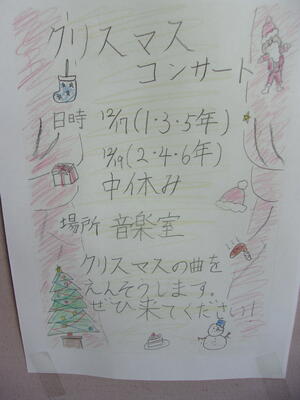 クリスマス
コンサート
日時 12/17(1・3・5年)
12/19(2・4・6年)
中休み
場所 音楽室
クリスマスの曲を
えんそうします。
ぜひ来てください!